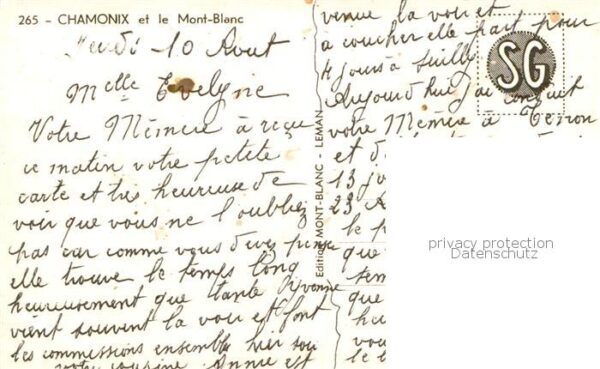 265 - CHAMONIX et le Mont-Blanc
Jeudi 10 Aout
Melle Evelyne
Votre Mémère à reçue
ce matin votre petite
carte et très heureuse de
voir que vous ne l'oubliez
pas car comme vous devez pense
elle trouve le temps long
heureusement que tante Yvonne
vient souvent la voir et font
les commissions ensemble hier soir
votre cousine Annie est
Edition MONT-BLANC - LEMAN
venue la voir et
à coucher elle part pour
4 jours à
Aujourd'hui j'ai conduit
votre Mémère à
et d
13 jo
23 A
le p
que
tem
que
heu
vou
le t
SG
privacy protection
Datenschutz